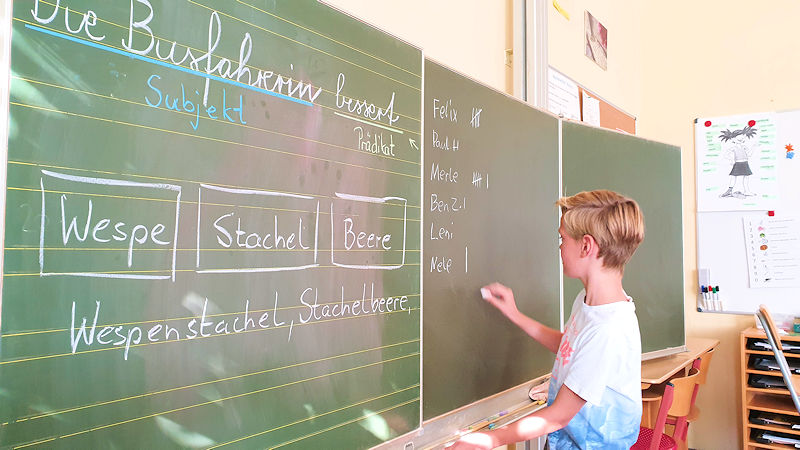 Die Busfahrerin bessert
Subjekt
Prädikat
Wespe Stachel Beere
Wespenstachel, Stachelbeere,
Felix
Paul H
Merle
Ben Z.
Leni
Nele